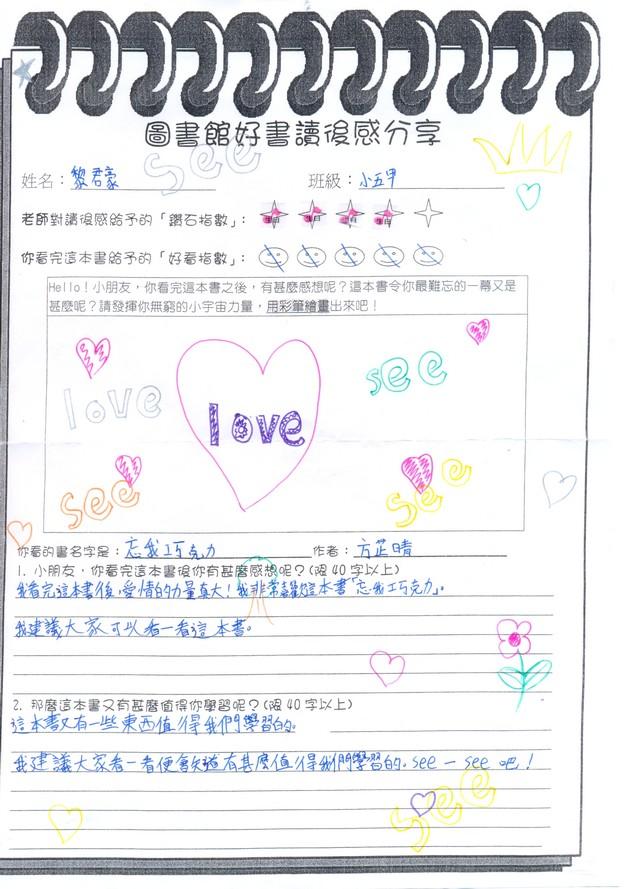 圖書館好書讀後感分享
see
姓名：黎君豪 班級：小五甲
老師對讀後感給予的「鑽石指數」：
你看完這本書給予的「好看指數」：
Hello！小朋友，你看完這本書之後，有甚麼感想呢？這本書令你最難忘的一幕又是
甚麼呢？請發揮你無窮的小宇宙力量，用彩筆繪畫出來吧！
love
love
see
see
see
你看的書名字是：忘我巧克力 作者：方芷晴
1. 小朋友，你看完這本書後你有甚麼感想呢？(限 40 字以上)
我看完這本書後，愛情的力量真大！我非常喜歡這本書「忘我巧克力」。
我建議大家可以看一看這本書。
2. 那麼這本書又有甚麼值得你學習呢？(限 40 字以上)
這本書又有一些東西值得我們學習的。
我建議大家看一看便會知道有甚麼值得我們學習的。see 一 see 吧！
see